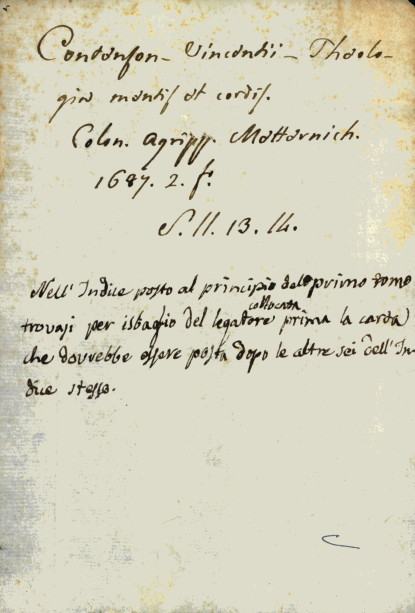 Contenson - Vincentii - Theolo-
gia mentis et cordis.
Colon. Agripp. Metternich.
1687. 2. f.
S. II. 13. 14.
Nell' Indice posto al principio del primo tomo
collocata
trovasi per isbaglio del legatore prima la carta
che dovrebbe essere posta dopo le altre sei dell' In-
dice stesso.